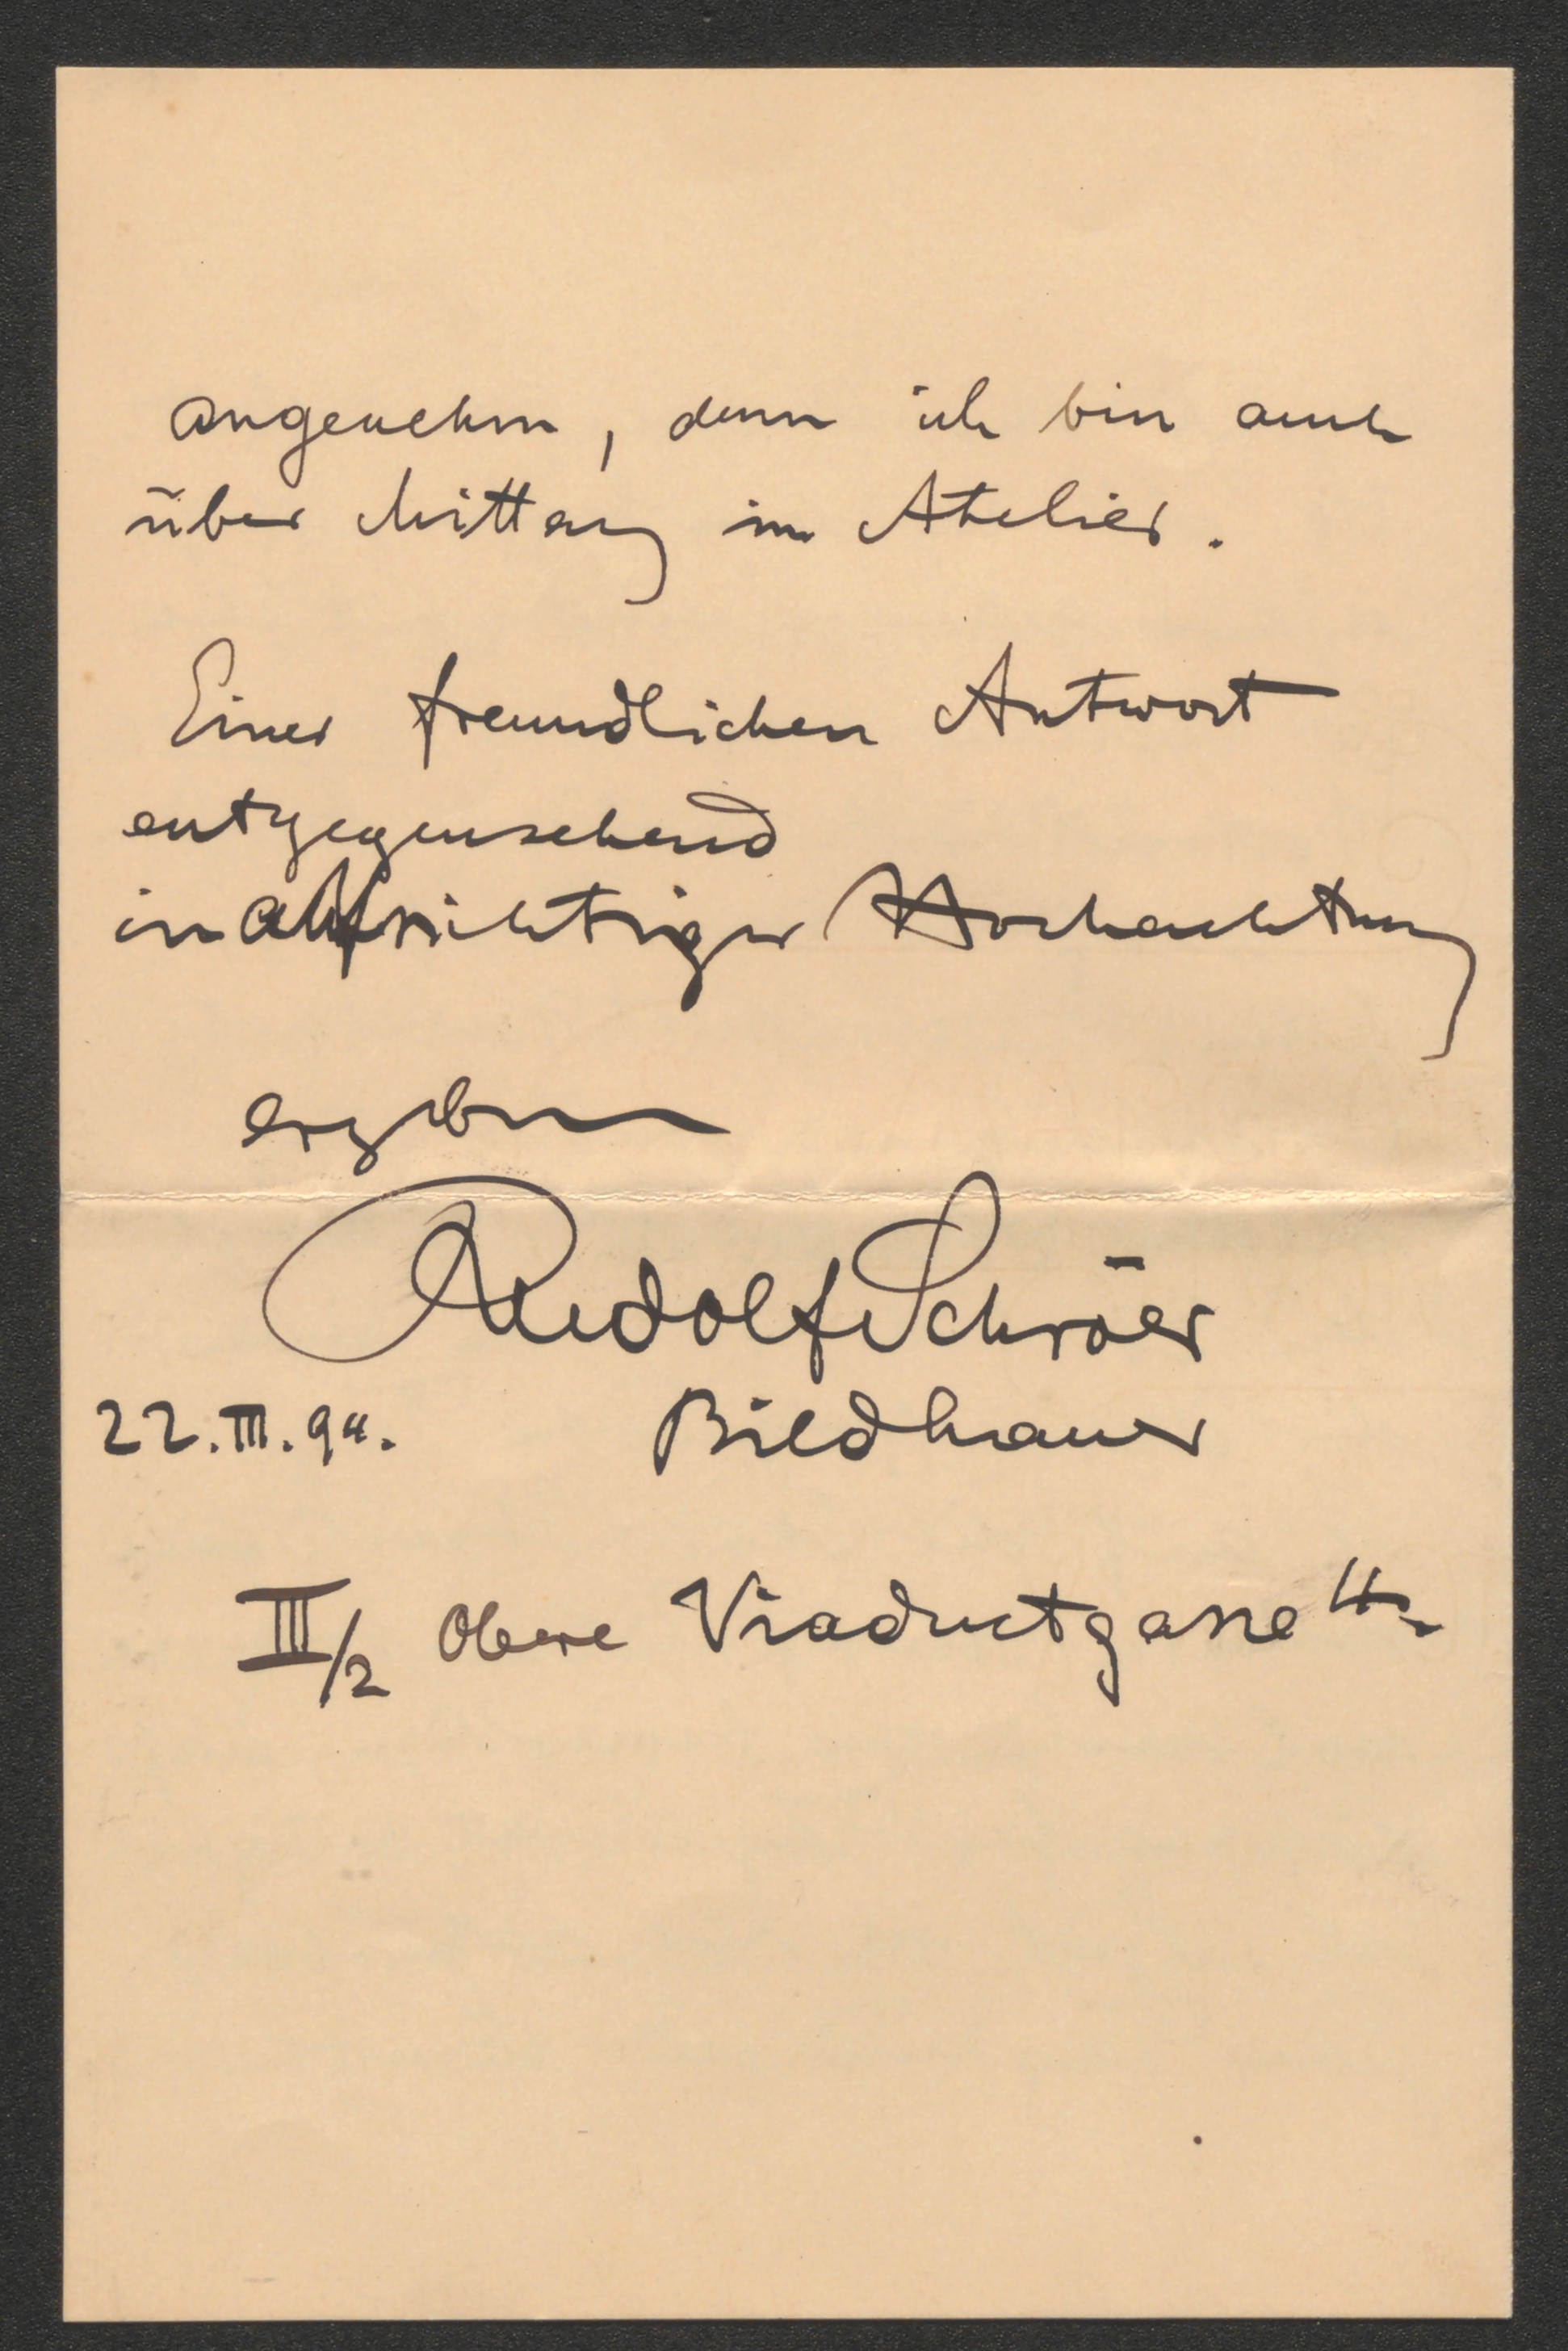 angenehm, denn ich bin auch
über Mittag im Atelier.
Einer freundlichen Antwort
entgegensehend
in aufrichtiger Hochachtung
ergebenst
Rudolf Schröer
22.III.94. Bildhauer
III/2 Obere Viaductgasse